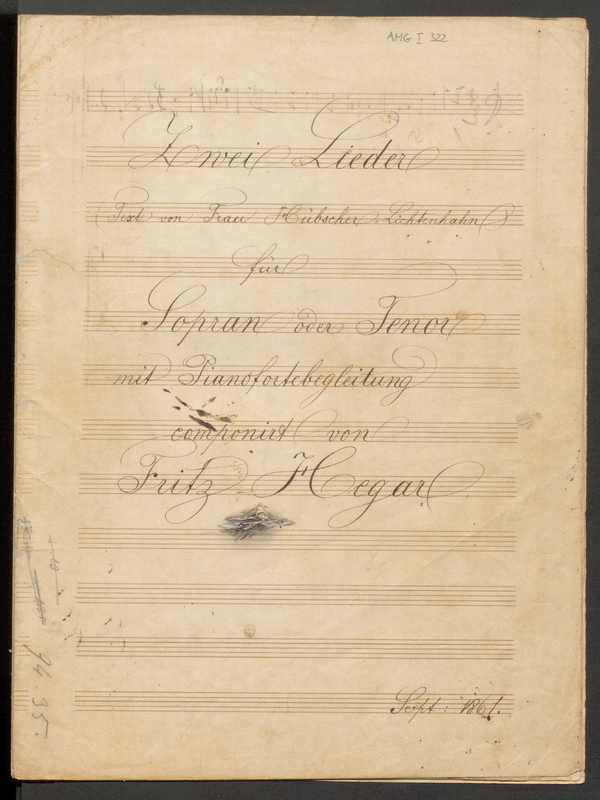 AMG I 322
Zwei Lieder
(Text von Frau Hübscher-Lichtenhahn)
für
Sopran oder Tenor
mit Pianofortebegleitung
componirt von
Fritz Hegar.
Sept: 1861.
94 95.